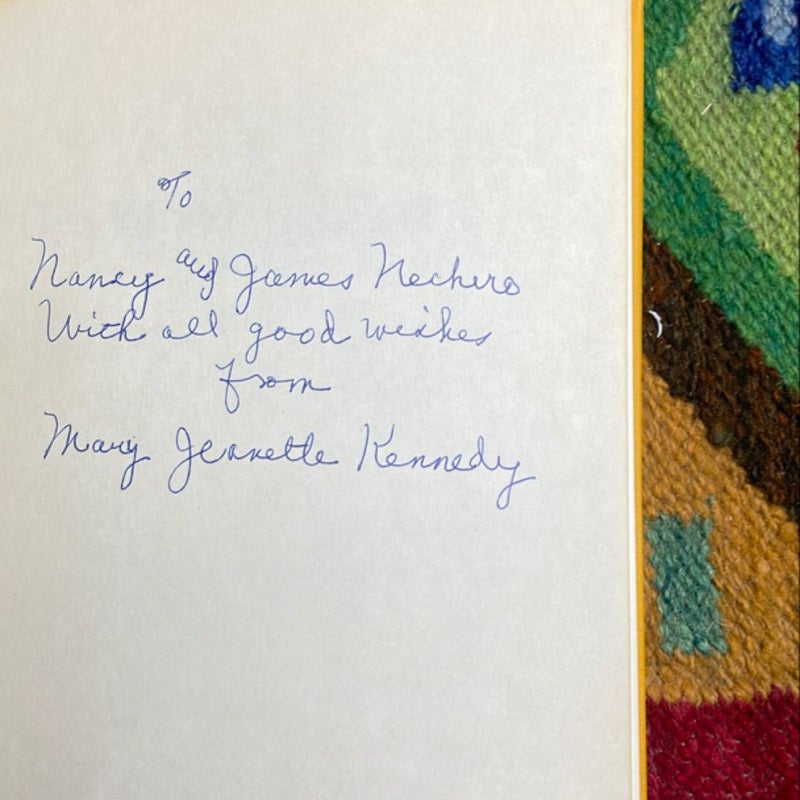 To
Nancy and James Nechero
With all good wishes
from
Mary Jeanette Kennedy